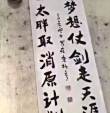 梦想仗剑走天涯
太胖取消原计划